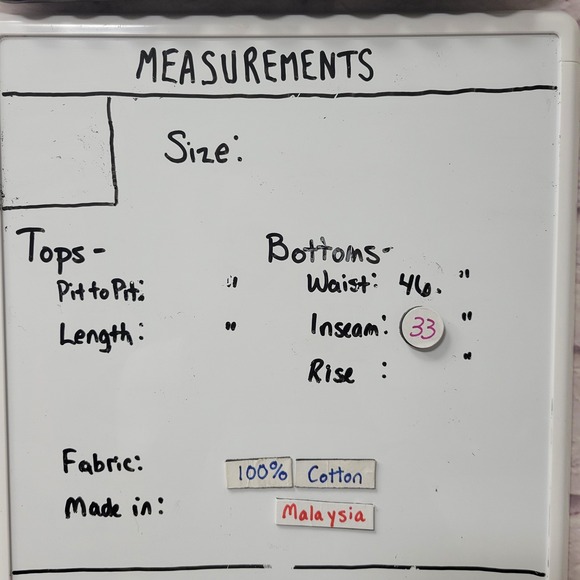 MEASUREMENTS
Size:
Tops-
Pit to Pit: "
Length: "
Bottoms-
Waist: 46. "
Inseam: 33 "
Rise : "
Fabric: 100% Cotton
Made in: Malaysia